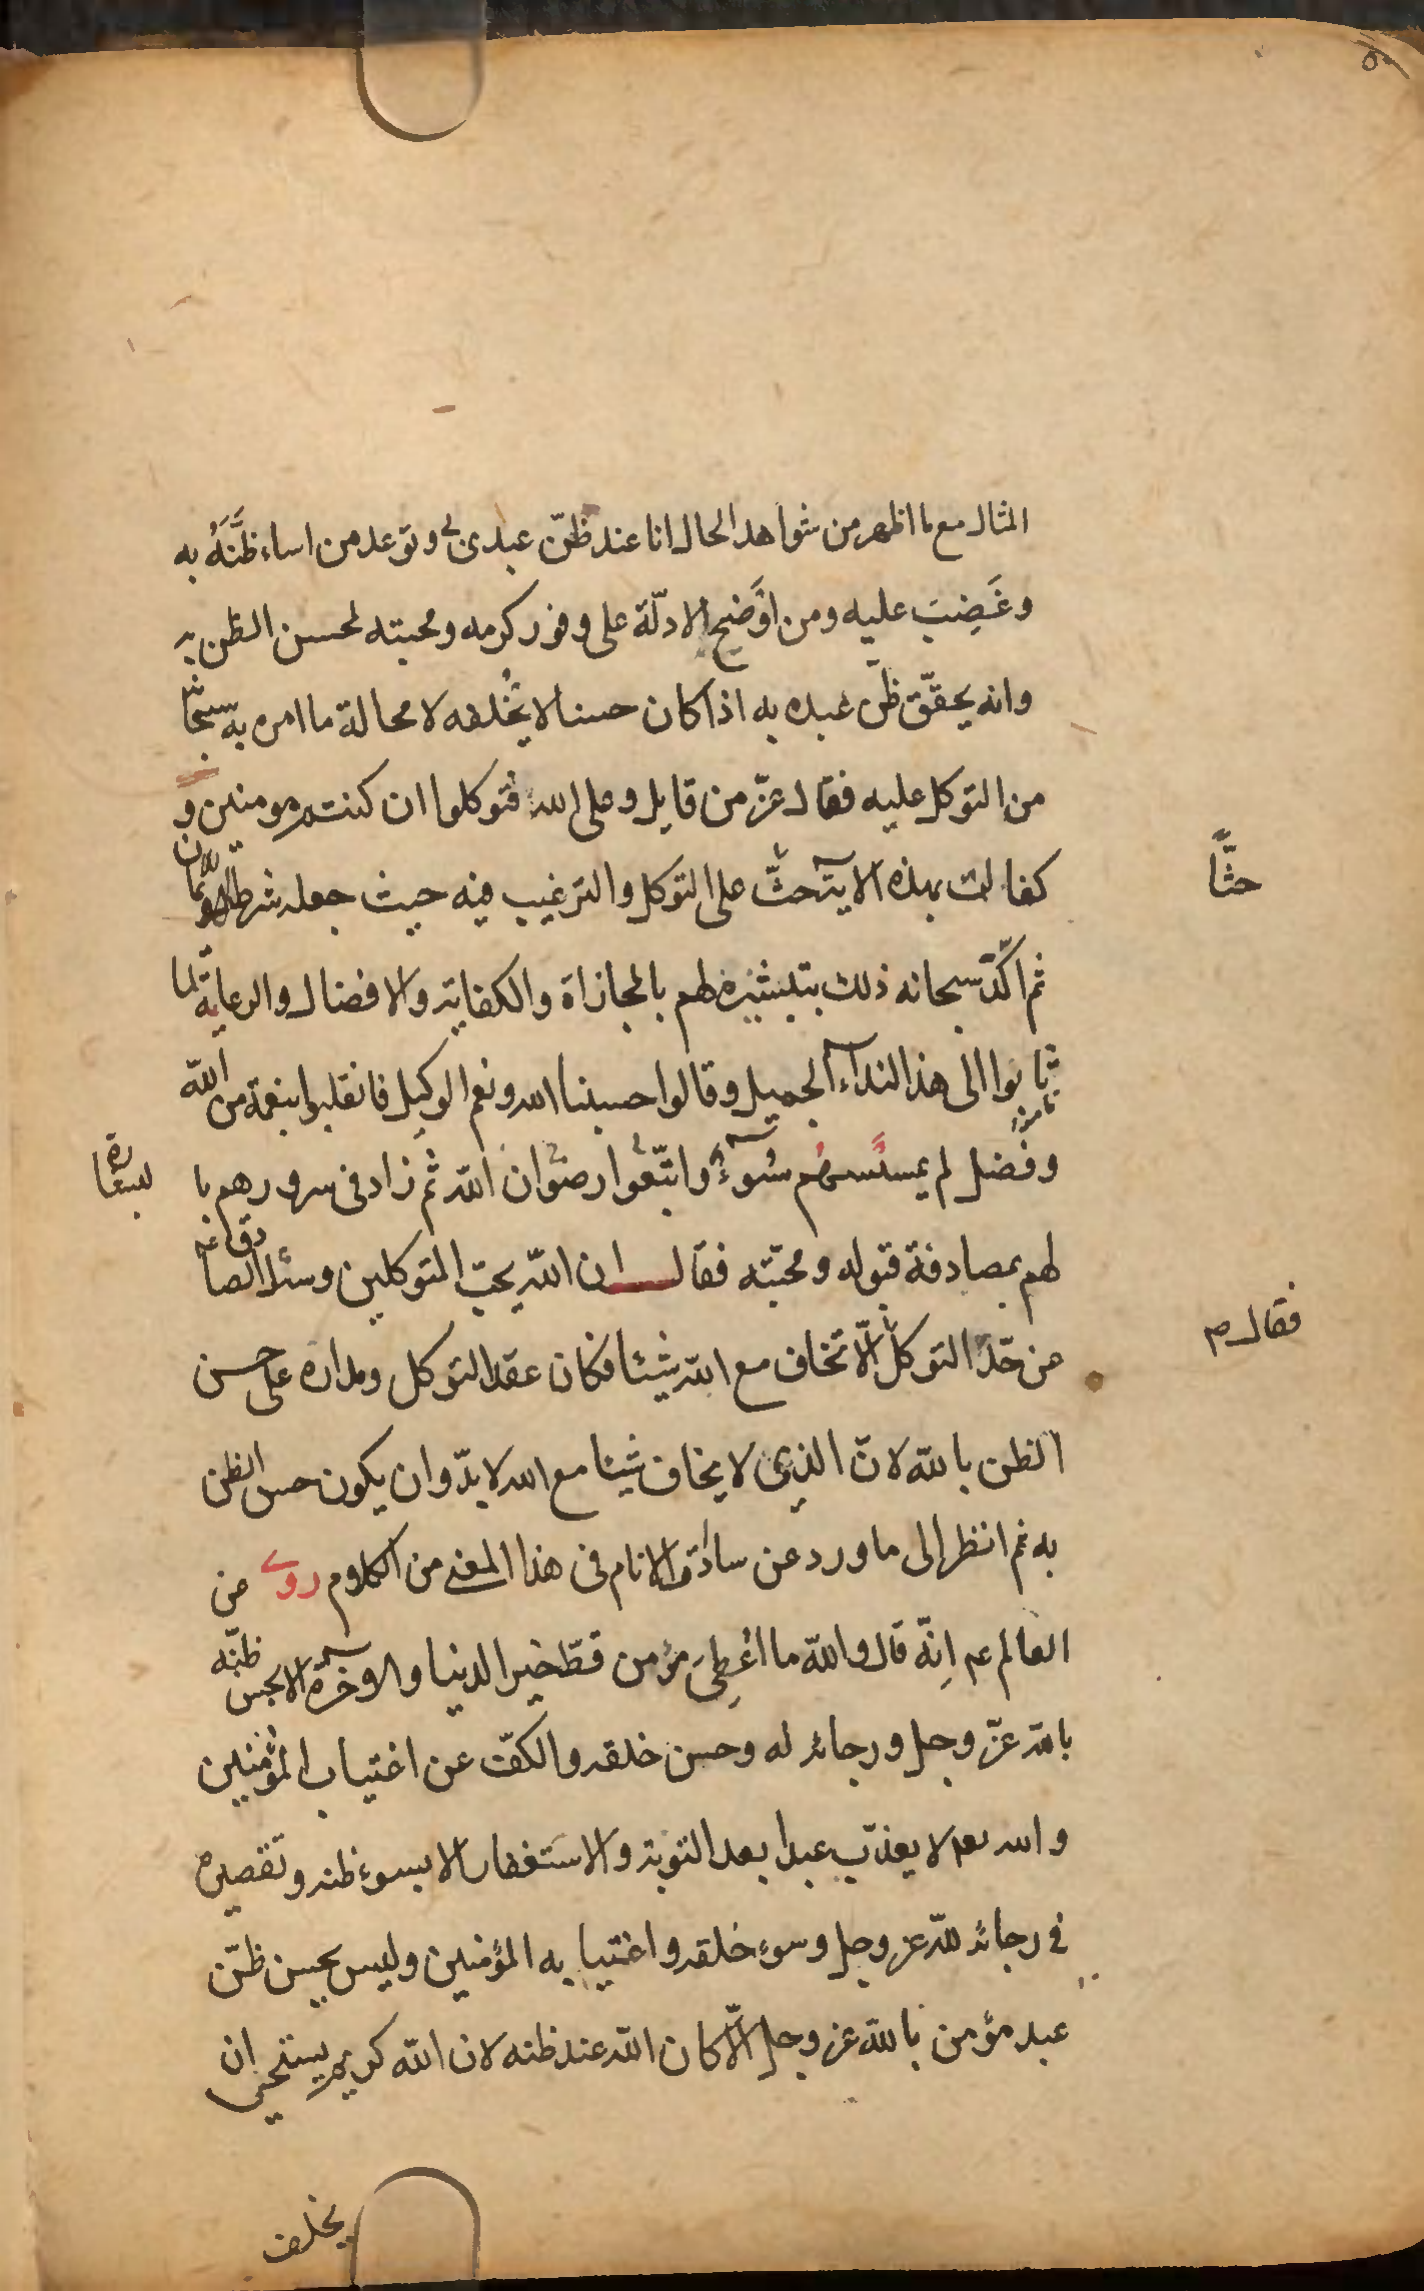 المثال مع ما اظهر من شواهد الحال انا عند ظنّ عبدى بى وتوعد من اساء ظنَّهُ به
وغَضِبَ عليه ومن اوَضَحِ الادلّة على وفور كرمه ومحبته لحسن الظن به
وانه يحقّق ظنّ عبده به اذا كان حسنا لا يُخْلفه لا محالة ما امر به سبحانه
من التوكل عليه فقال عزّ من قايل وعلى الله فتوكلوا ان كنتم مومنين و
كفا لك بهذه الايه حثّ على التوكل والترغيب فيه حيث جعله شرطا للايمان
حثًّا
ثم اكّد سبحانه ذلك بتبشيره لهم بالمجازاة والكفاية والافضال والرعاية لمّا
ثابوا الى هذا النداء الجميل وقالوا حسبنا الله ونعم الوكيل فانقلبوا بنعمة من الله
وفضل لم يمسسهم سُوءٌ واتّبعُوا رضوان الله ثم زاد فى سرورهم با
لبشارة
لهم بمصادفة قبوله ومحبّته فقال ان الله يحبّ المتوكلين وسئل الصادق عم
عن حّد التوكل الّا تخاف مع الله شيئا فكان عقد التوكل ومداره على حسن
فقال م
الظن بالله لانّ الذى لا يخاف شيئا مع الله لا بدّ وان يكون حسن الظن
به ثم انظر الى ما ورد عن سادة الانام فى هذا المعنى من الكلام روى عن
العالم عم اِنّه قال والله ما اُعْطِىَ مؤمن قطّ خير الدنيا والاخرة الا بحسن ظنّه
بالله عزّ وجل ورجائه له وحسن خلقه والكفّ عن اغتياب المؤمنين
والله تعم لا يعذّب عبدا بعد التوبة والاستغفار الا بسوء ظنه وتقصيره
فى رجائه لله عز وجل وسوء خلقه واغتيابه المؤمنين وليس يحسن ظنّ
عبد مؤمن بالله عز وجل الّا كان الله عند ظنه لان الله كريم يستحيى ان
يخلف